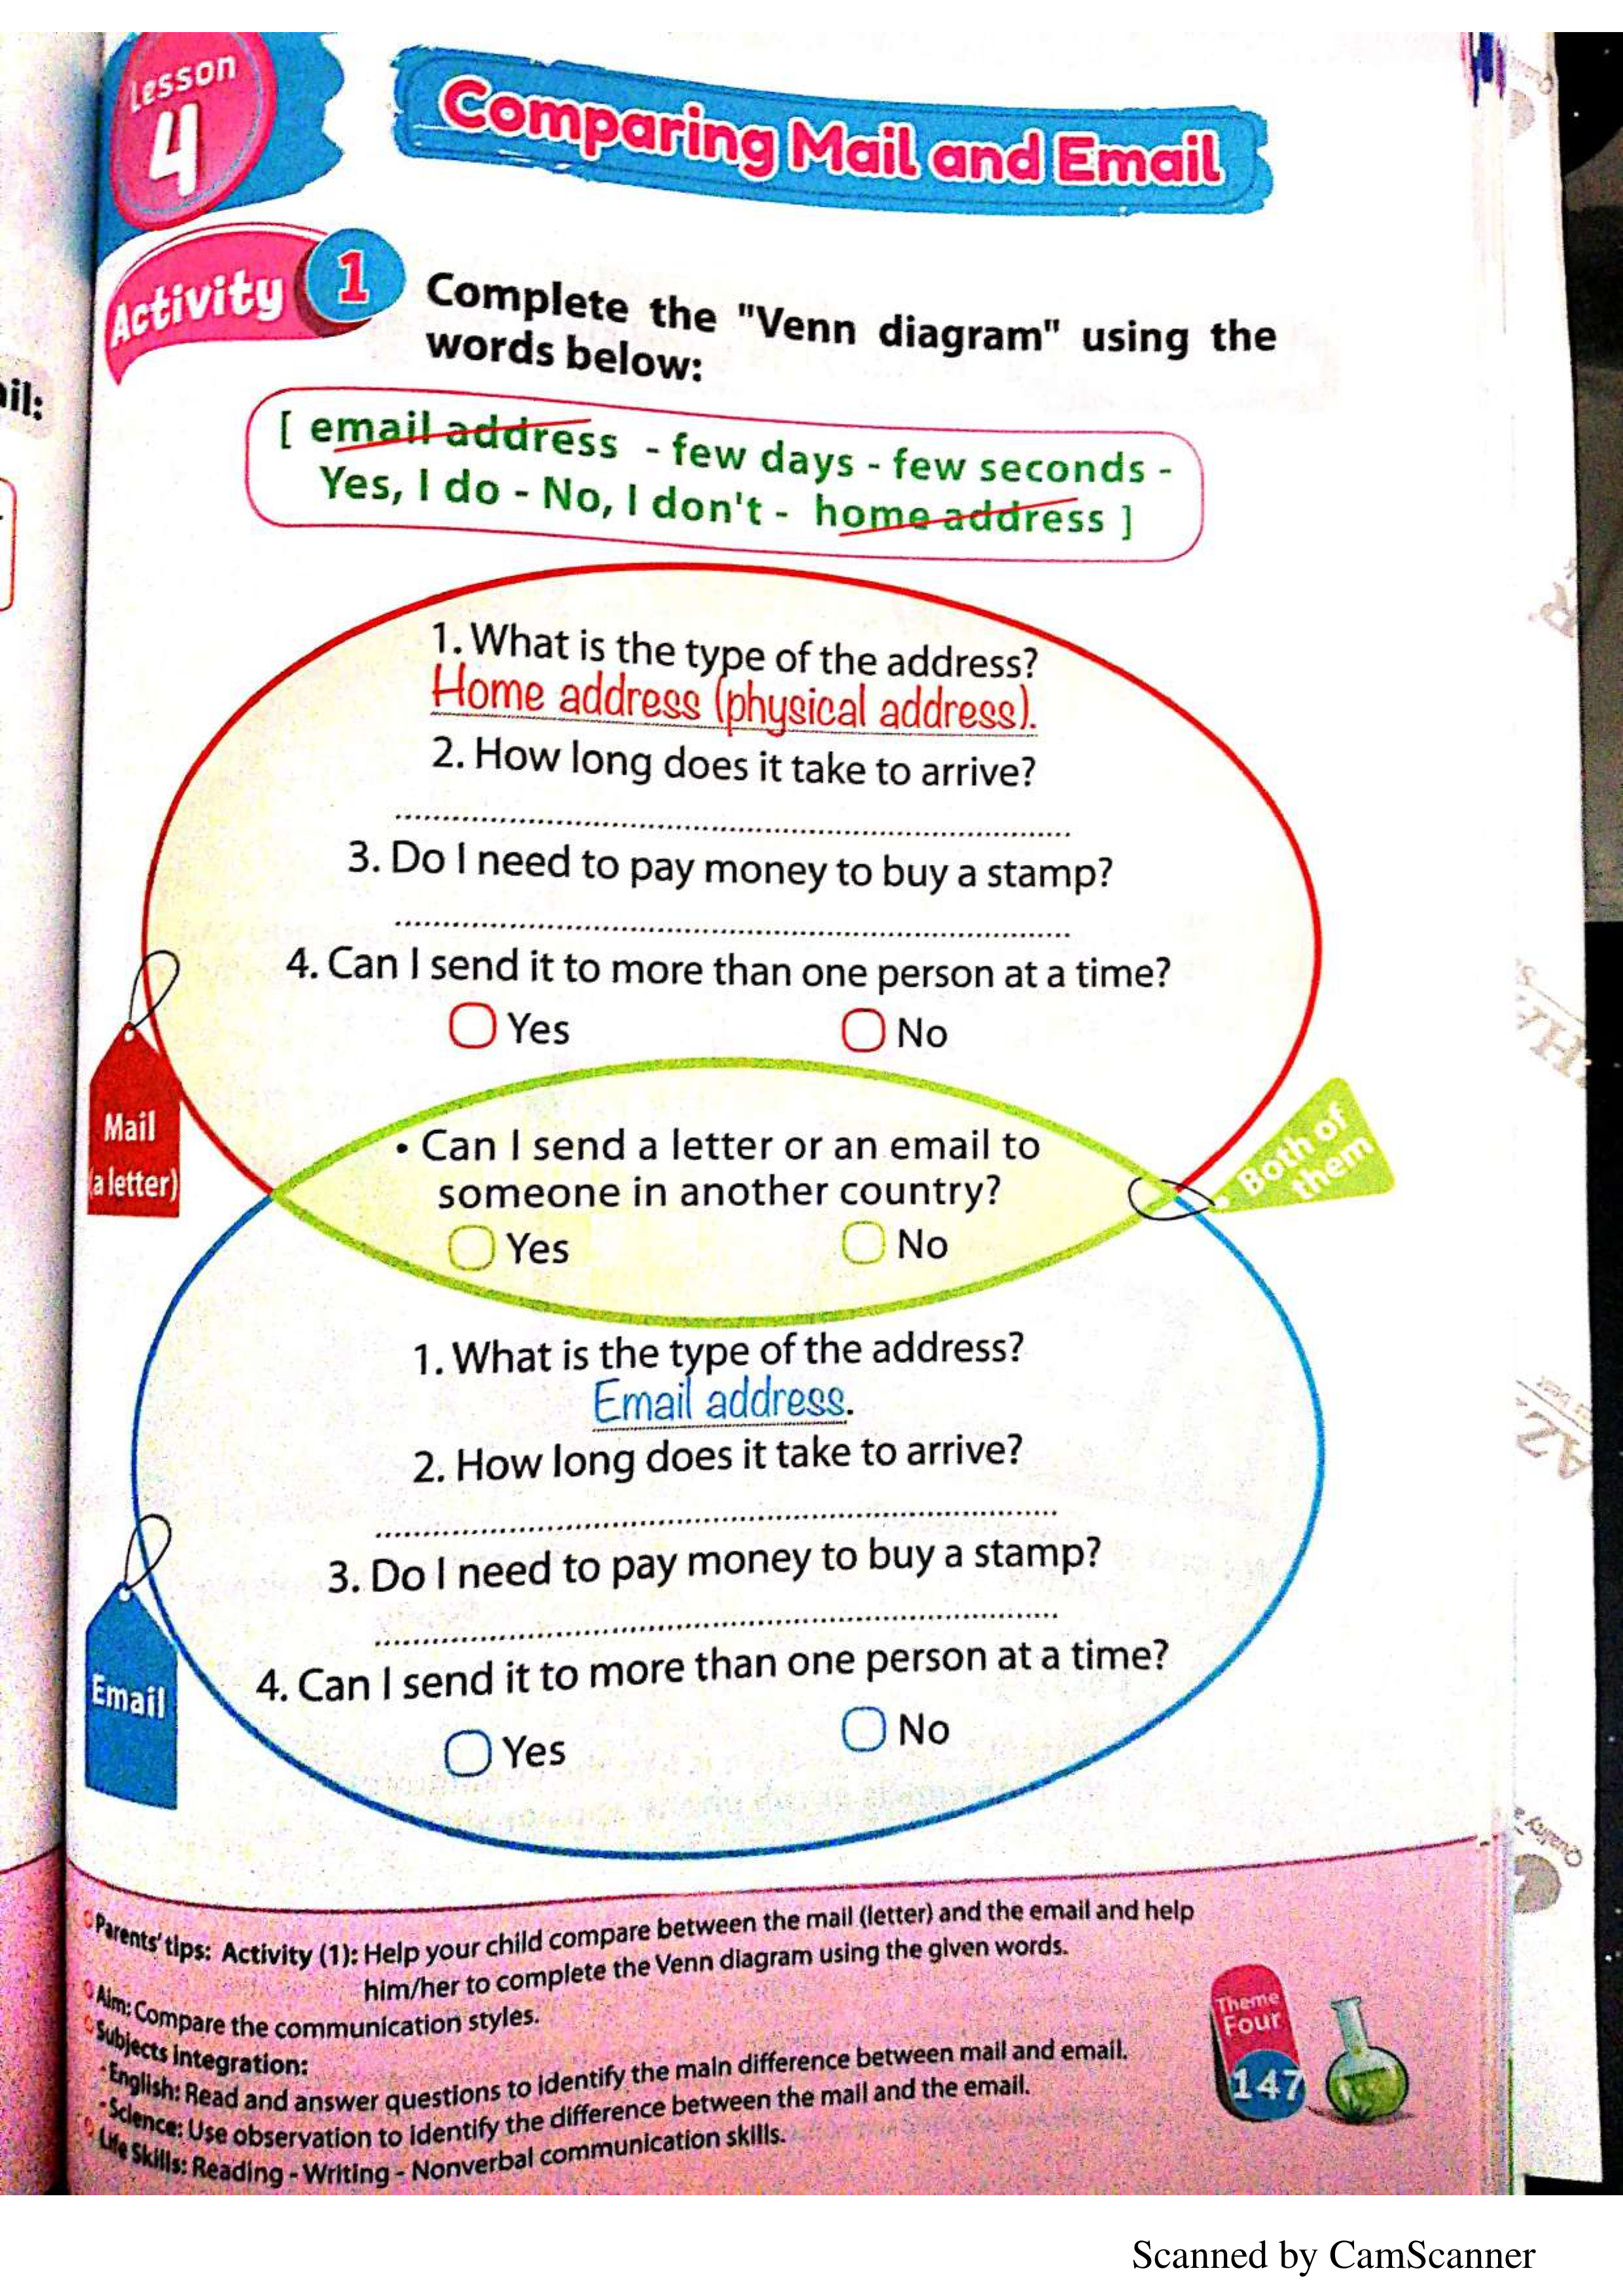 Lesson
4
Comparing Mail and Email
Activity 1
Complete the "Venn diagram" using the
words below:
il:
[ email address - few days - few seconds -
Yes, I do - No, I don't - home address ]
1. What is the type of the address?
Home address (physical address).
2. How long does it take to arrive?
3. Do I need to pay money to buy a stamp?
4. Can I send it to more than one person at a time?
Yes No
Mail
(a letter)
• Can I send a letter or an email to
someone in another country?
Yes No
Both of
them
1. What is the type of the address?
Email address.
2. How long does it take to arrive?
3. Do I need to pay money to buy a stamp?
4. Can I send it to more than one person at a time?
Yes No
Email
Parents' tips: Activity (1): Help your child compare between the mail (letter) and the email and help
him/her to complete the Venn diagram using the given words.
Aim: Compare the communication styles.
Subjects integration:
-English: Read and answer questions to identify the main difference between mail and email.
-Science: Use observation to identify the difference between the mail and the email.
Life Skills: Reading - Writing - Nonverbal communication skills.
Theme
Four
147
Quality
Scanned by CamScanner